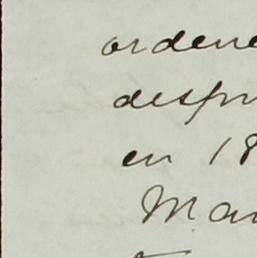 ordene
despu
en 18
Mar